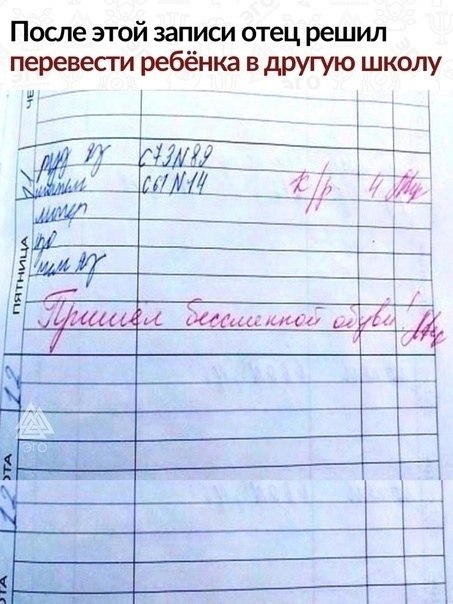 После этой записи отец решил
перевести ребёнка в другую школу
ЧЕ
ПЯТНИЦА
рус яз С73 N89
матем С61 N14 к/р 4
литер
Пришёл бессменной обуви!
12
ЭГО
ОТА
12
ТА